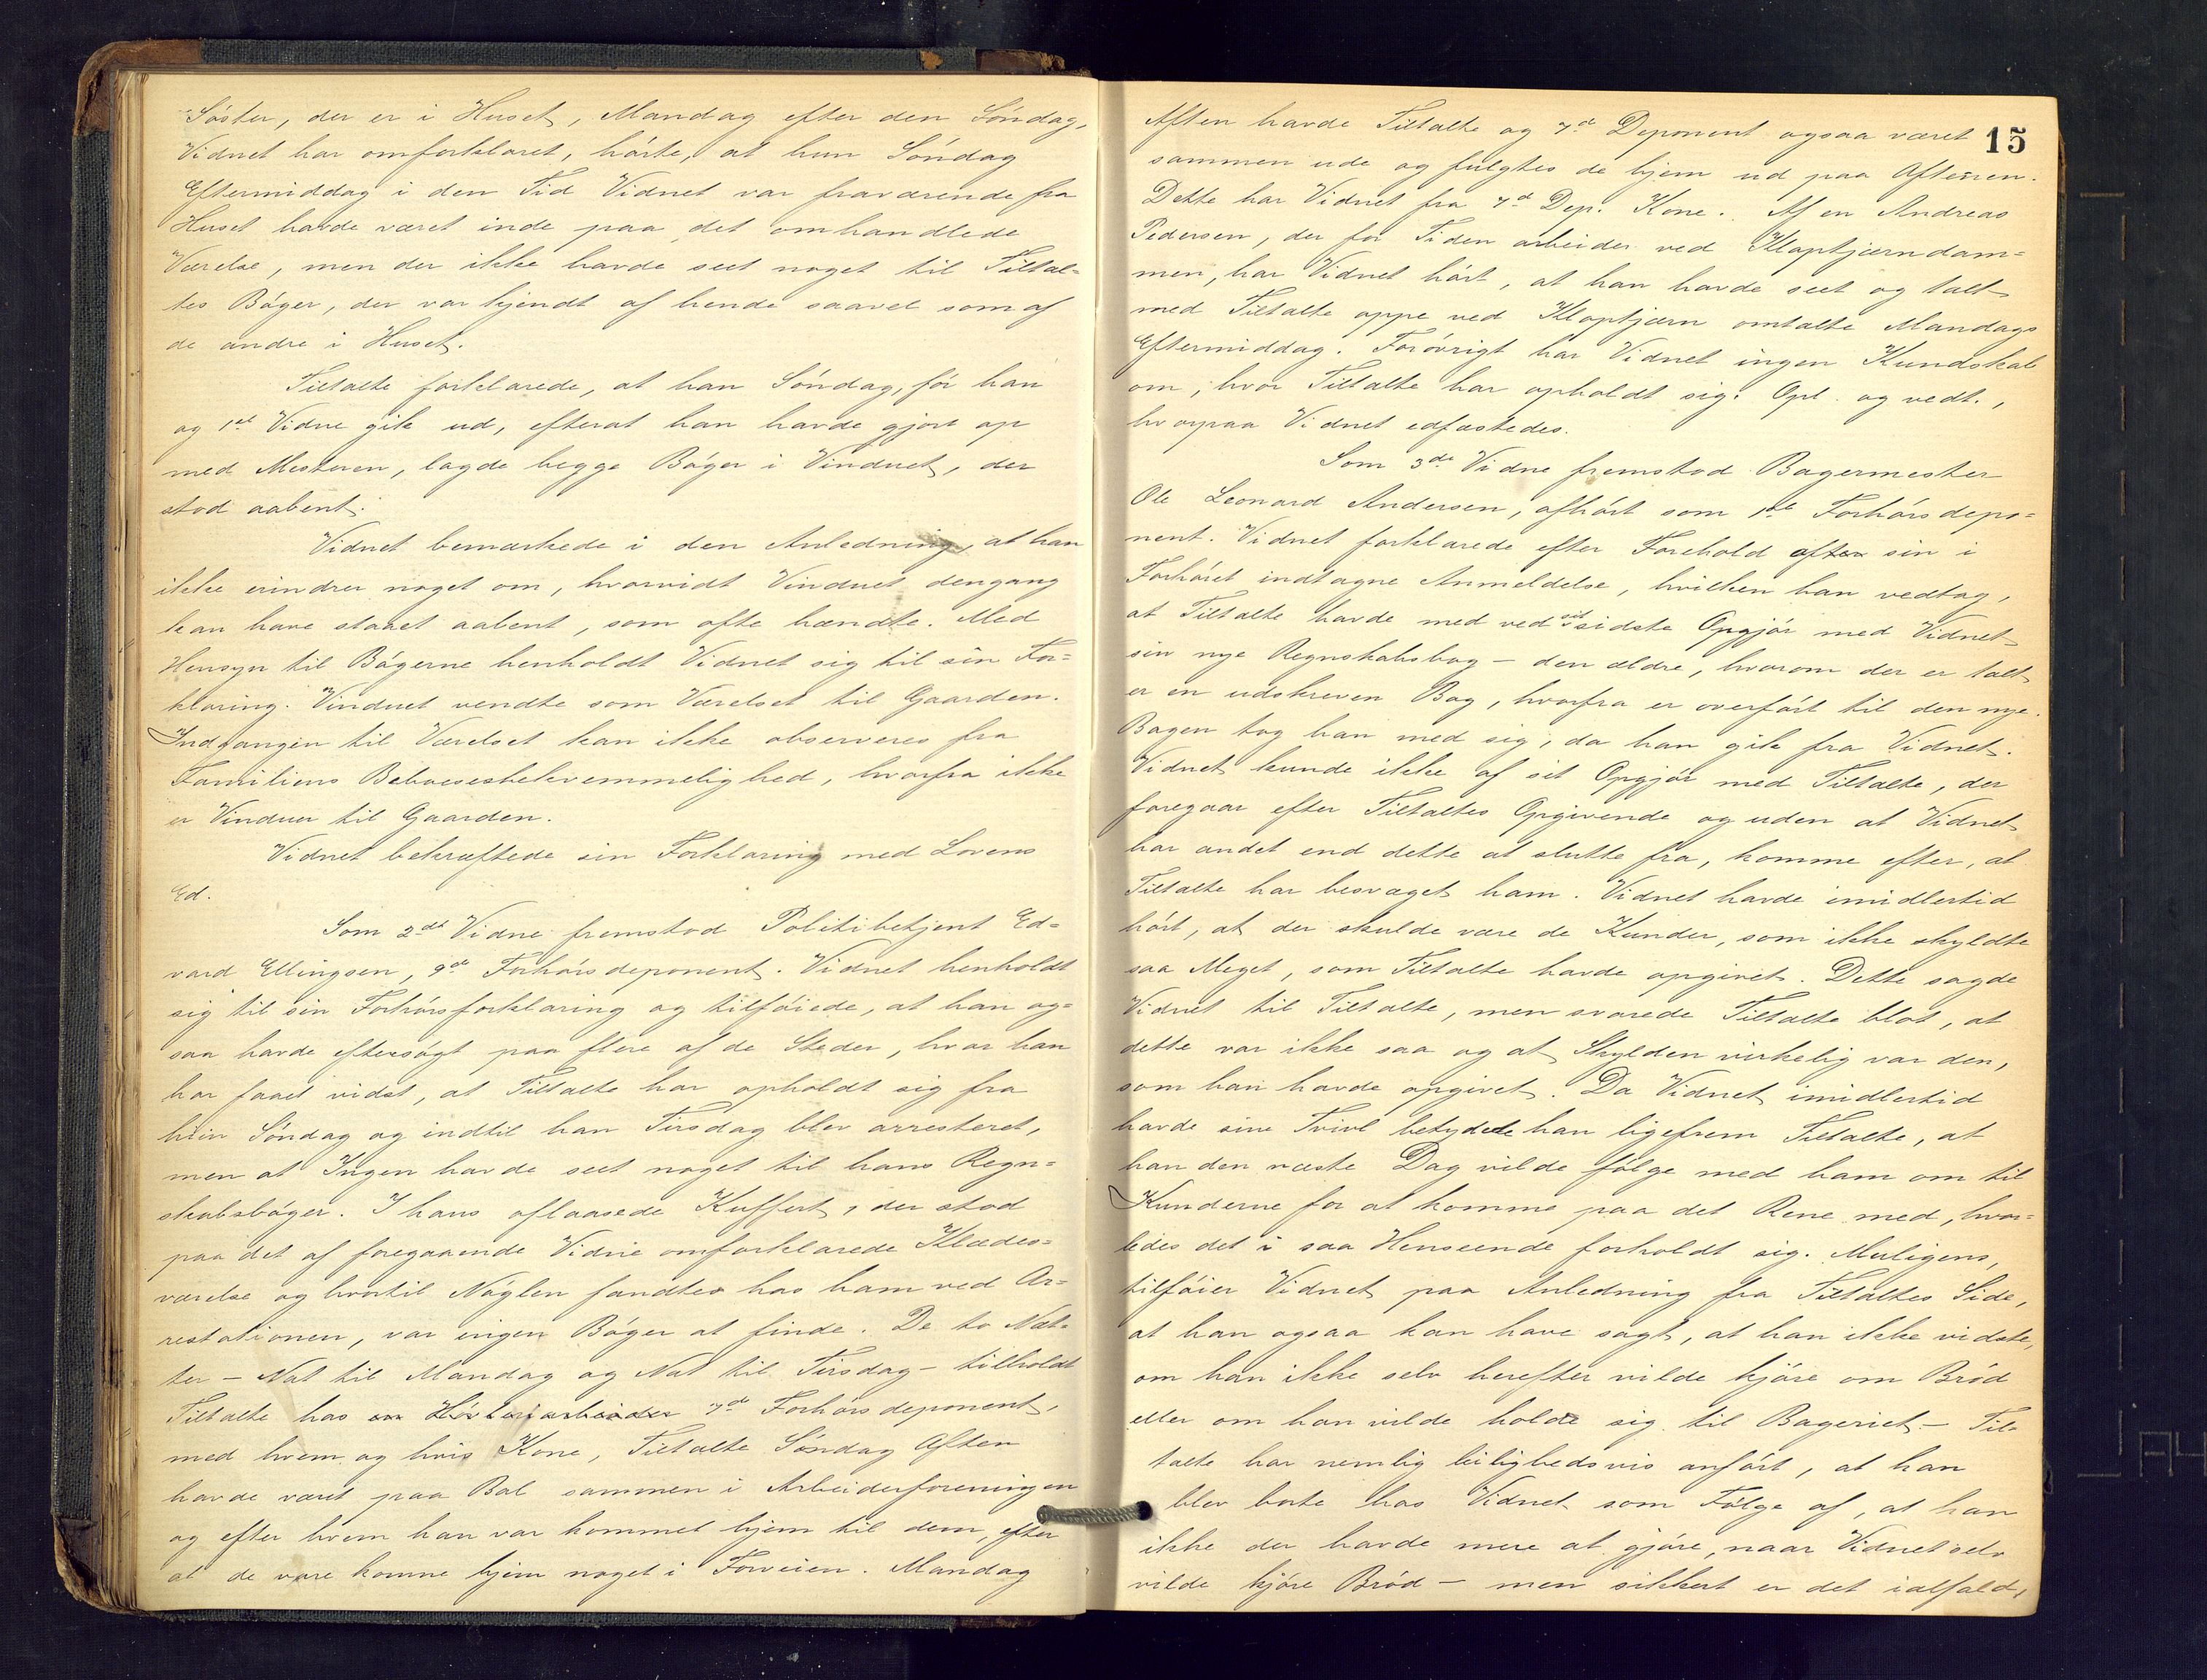 Söster, der er i Huset, Mandag efter den Söndag,
Vidnet har omforklaret, hörte, at hun Söndag
Eftermiddag i den Tid Vidnet var fraværende fra
Huset havde været inde paa det omhandlede
Værelse, men der ikke havde seet noget til Tiltal=
tes Böger, der var kjendt af hende saavel som af
de andre i Huset.
Tiltalte forklarede, at han Söndag, för han
og 1ste Vidne gik ud, efterat han havde gjort op
med Mesteren, lagde begge Böger i Vinduet, der
stod aabent.
Vidnet bemærkede i den Anledning, at han
ikke erindrer noget om, hvorvidt Vinduet dengang
kan have staaet aabent, som ofte hændte. Med
Hensyn til Bögerne henholdt Vidnet sig til sin For=
klaring. Vinduet vendte som Værelset til Gaarden.
Indgangen til Værelset kan ikke observeres fra
Familiens Beboelsesbekvemmelighed, hvorfra ikke
er Vinduer til Gaarden.
Vidnet bekræftede sin Forklaring med Lovens
Ed.
Som 2det Vidne fremstod Politibetjent Ed=
vard Ellingsen, 9de Forhörsdeponent. Vidnet henholdt
sig til sin Forhörsforklaring og tilföiede, at han og=
saa havde eftersögt paa flere af de Steder, hvor han
har faaet vidst, at Tiltalte har opholdt sig fra
hiin Söndag og indtil han Tirsdag blev arresteret,
men at Ingen havde seet noget til hans Regn=
skabsböger. I hans aflaasede Kuffert, der stod
paa det af foregaaende Vidne omforklarede Klædes=
værelse og hvortil Nöglen fandtes hos ham ved Ar=
restationen, var ingen Böger at finde. De to Næt=
ter – Nat til Mandag og Nat til Tirsdag – tilholdt
Tiltalte hos 7de Forhörsdeponent,
med hvem og hvis Kone, Tiltalte Söndag Aften
havde været paa Bal sammen i Arbeiderforeningen
og efter hvem han var kommet hjem til dem, efter
at de vare komne hjem noget i Forveien. Mandag
15
Aften havde Tiltalte og 7de Deponent ogsaa været
sammen ude og fulgtes de hjem ud paa Aftenen.
Dette har Vidnet fra 7de Dep. Kone. Af en Andreas
Pedersen, der for Tiden arbeider ved Kloptjærndam=
men, har Vidnet hört, at han havde seet og talt
med Tiltalte oppe ved Kloptjærn omtalte Mandags
Eftermiddag. Forövrigt har Vidnet ingen Kundskab
om, hvor Tiltalte har opholdt sig. Opl. og vedt.,
hvorpaa Vidnet edfæstedes.
Som 3die Vidne fremstod Bagermester
Ole Leonard Andersen, afhört som 1ste Forhörsdepo=
nent. Vidnet forklarede efter Forehold after sin i
Forhöret indtagne Anmeldelse, hvilken han vedtog,
at Tiltalte havde med ved sit sidste Opgjör med Vidnet
sin nye Regnskabsbog – den ældre, hvorom der er talt
er en udskreven Bog, hvorfra er overfört til den nye.
Bogen tog han med sig, da han gik fra Vidnet.
Vidnet kunde ikke af sit Opgjör med Tiltalte, der
foregaar efter Tiltaltes Opgivende og uden at Vidnet
har andet end dette at slutte fra, komme efter, at
Tiltalte har besveget ham. Vidnet havde imidlertid
hört, at der skulde være de Kunder, som ikke skyldte
saa Meget, som Tiltalte havde opgivet. Dette sagde
Vidnet til Tiltalte, men svarede Tiltalte blot, at
dette var ikke saa og at Skylden virkelig var den,
som han havde opgivet. Da Vidnet imidlertid
havde sine Tvivl betydede han ligefrem Tiltalte, at
han den næste Dag vilde fölge med ham om til
Kunderne for at komme paa det Rene med, hvor=
ledes det i saa Henseende forholdt sig. Muligens,
tilföier Vidnet paa Anledning fra Tiltaltes Side,
at han ogsaa kan have sagt, at han ikke vidste,
om han ikke selv herefter vilde kjöre om Bröd
eller om han vilde holde sig til Bageriet – Til=
talte har nemlig leilighedsvis anfört, at han
blev borte hos Vidnet som Fölge af, at han
ikke der havde mere at gjöre, naar Vidnet selv
vilde kjöre Bröd – men sikkert er det ialfald,